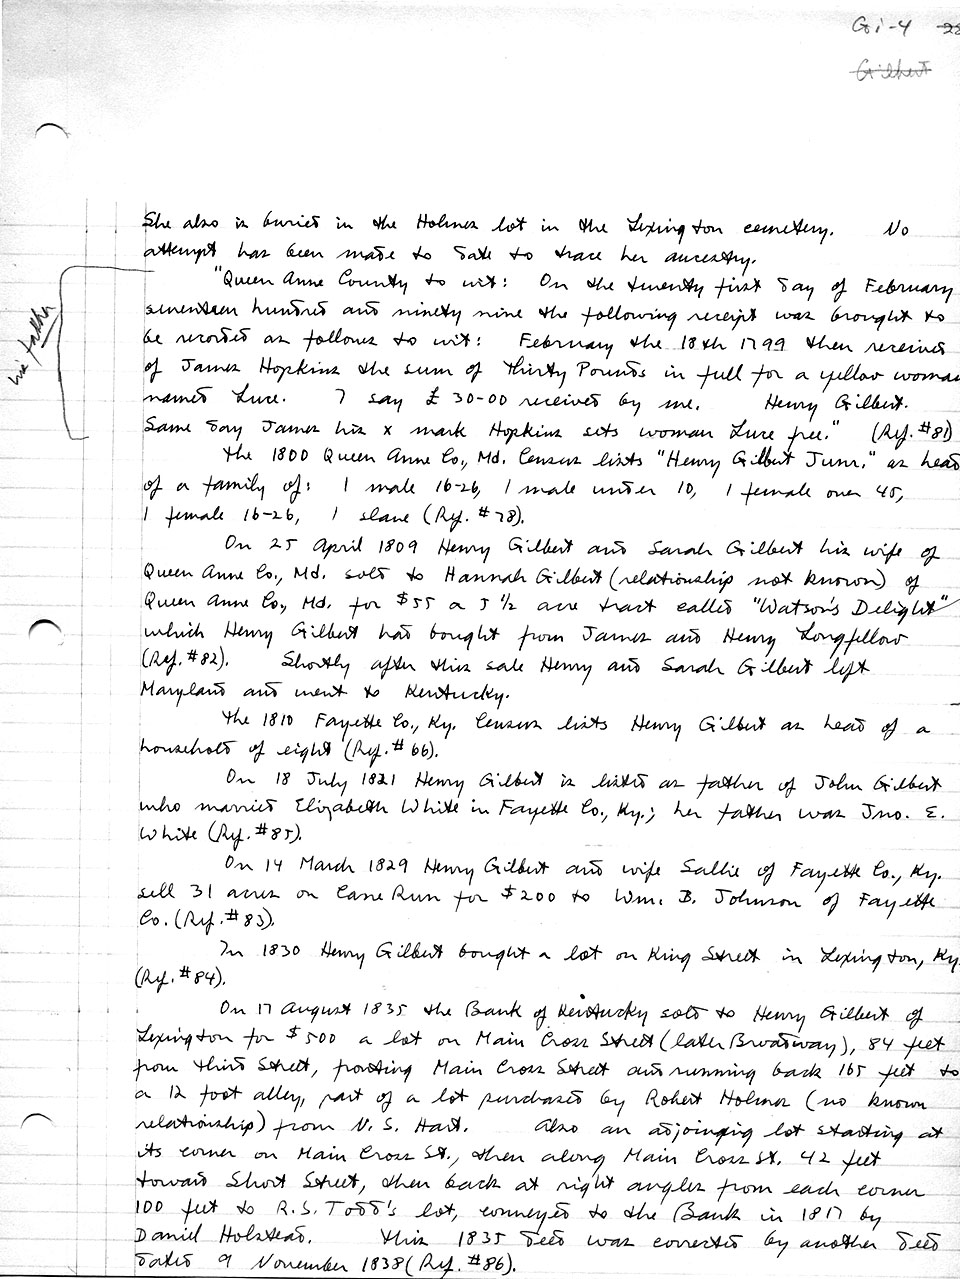 Gi-4 28
Gilbert
She also is buried in the Holmes lot in the Lexington cemetery. No
attempt has been made to date to trace her ancestry.
"Queen Anne County to wit: On the twenty first day of February
seventeen hundred and ninety nine the following receipt was brought to
be recorded as follows to wit: February the 18th 1799 then received
of James Hopkins the sum of Thirty Pounds in full for a yellow woman
named Luce. I say £ 30-00 received by me. Henry Gilbert.
Same day James his x mark Hopkins sets woman Luce free." (Ref. #81)
his father
The 1800 Queen Anne Co., Md. Census lists "Henry Gilbert Junr." as head
of a family of: 1 male 16-26, 1 male under 10, 1 female over 45,
1 female 16-26, 1 slave (Ref. #78).
On 25 April 1809 Henry Gilbert and Sarah Gilbert his wife of
Queen Anne Co., Md. sold to Hannah Gilbert (relationship not known) of
Queen Anne Co, Md. for $55 a 5 1/2 acre tract called "Watson's Delight"
which Henry Gilbert had bought from James and Henry Longfellow
(Ref. #82). Shortly after this sale Henry and Sarah Gilbert left
Maryland and went to Kentucky.
The 1810 Fayette Co., Ky. Census lists Henry Gilbert as head of a
household of eight (Ref. #66).
On 18 July 1821 Henry Gilbert is listed as father of John Gilbert
who married Elizabeth White in Fayette Co., Ky.; her father was Jno. E.
White (Ref. #85).
On 14 March 1829 Henry Gilbert and wife Sallie of Fayette Co., Ky.
sell 31 acres on Cane Run for $200 to Wm. B. Johnson of Fayette
Co. (Ref. #83).
In 1830 Henry Gilbert bought a lot on King Street in Lexington, Ky
(Ref. #84).
On 17 August 1835 the Bank of Kentucky sold to Henry Gilbert of
Lexington for $500 a lot on Main Cross Street (later Broadway), 84 feet
from third Street, fronting Main Cross Street and running back 165 feet to
a 12 foot alley, part of a lot purchased by Robert Holmes (no known
relationship) from N. S. Hart. Also an adjoining lot starting at
its corner on Main Cross St., then along Main Cross St. 42 feet
toward Short Street, then back at right angles from each corner
100 feet to R.S. Todd's lot, conveyed to the Bank in 1817 by
Daniel Holstead. This 1835 deed was corrected by another deed
dated 9 November 1838 (Ref. #86).